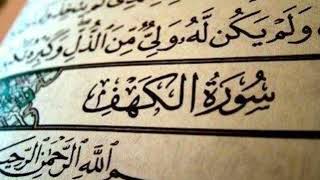 وَلَمْ يَكُن لَّهُۥ وَلِىٌّ مِّنَ ٱلذُّلِّ وَكَبِّرْهُ
سُورَةُ الكَهْفِ
ٱللَّهِ ٱلرَّحْمَٰنِ ٱلرَّحِيمِ